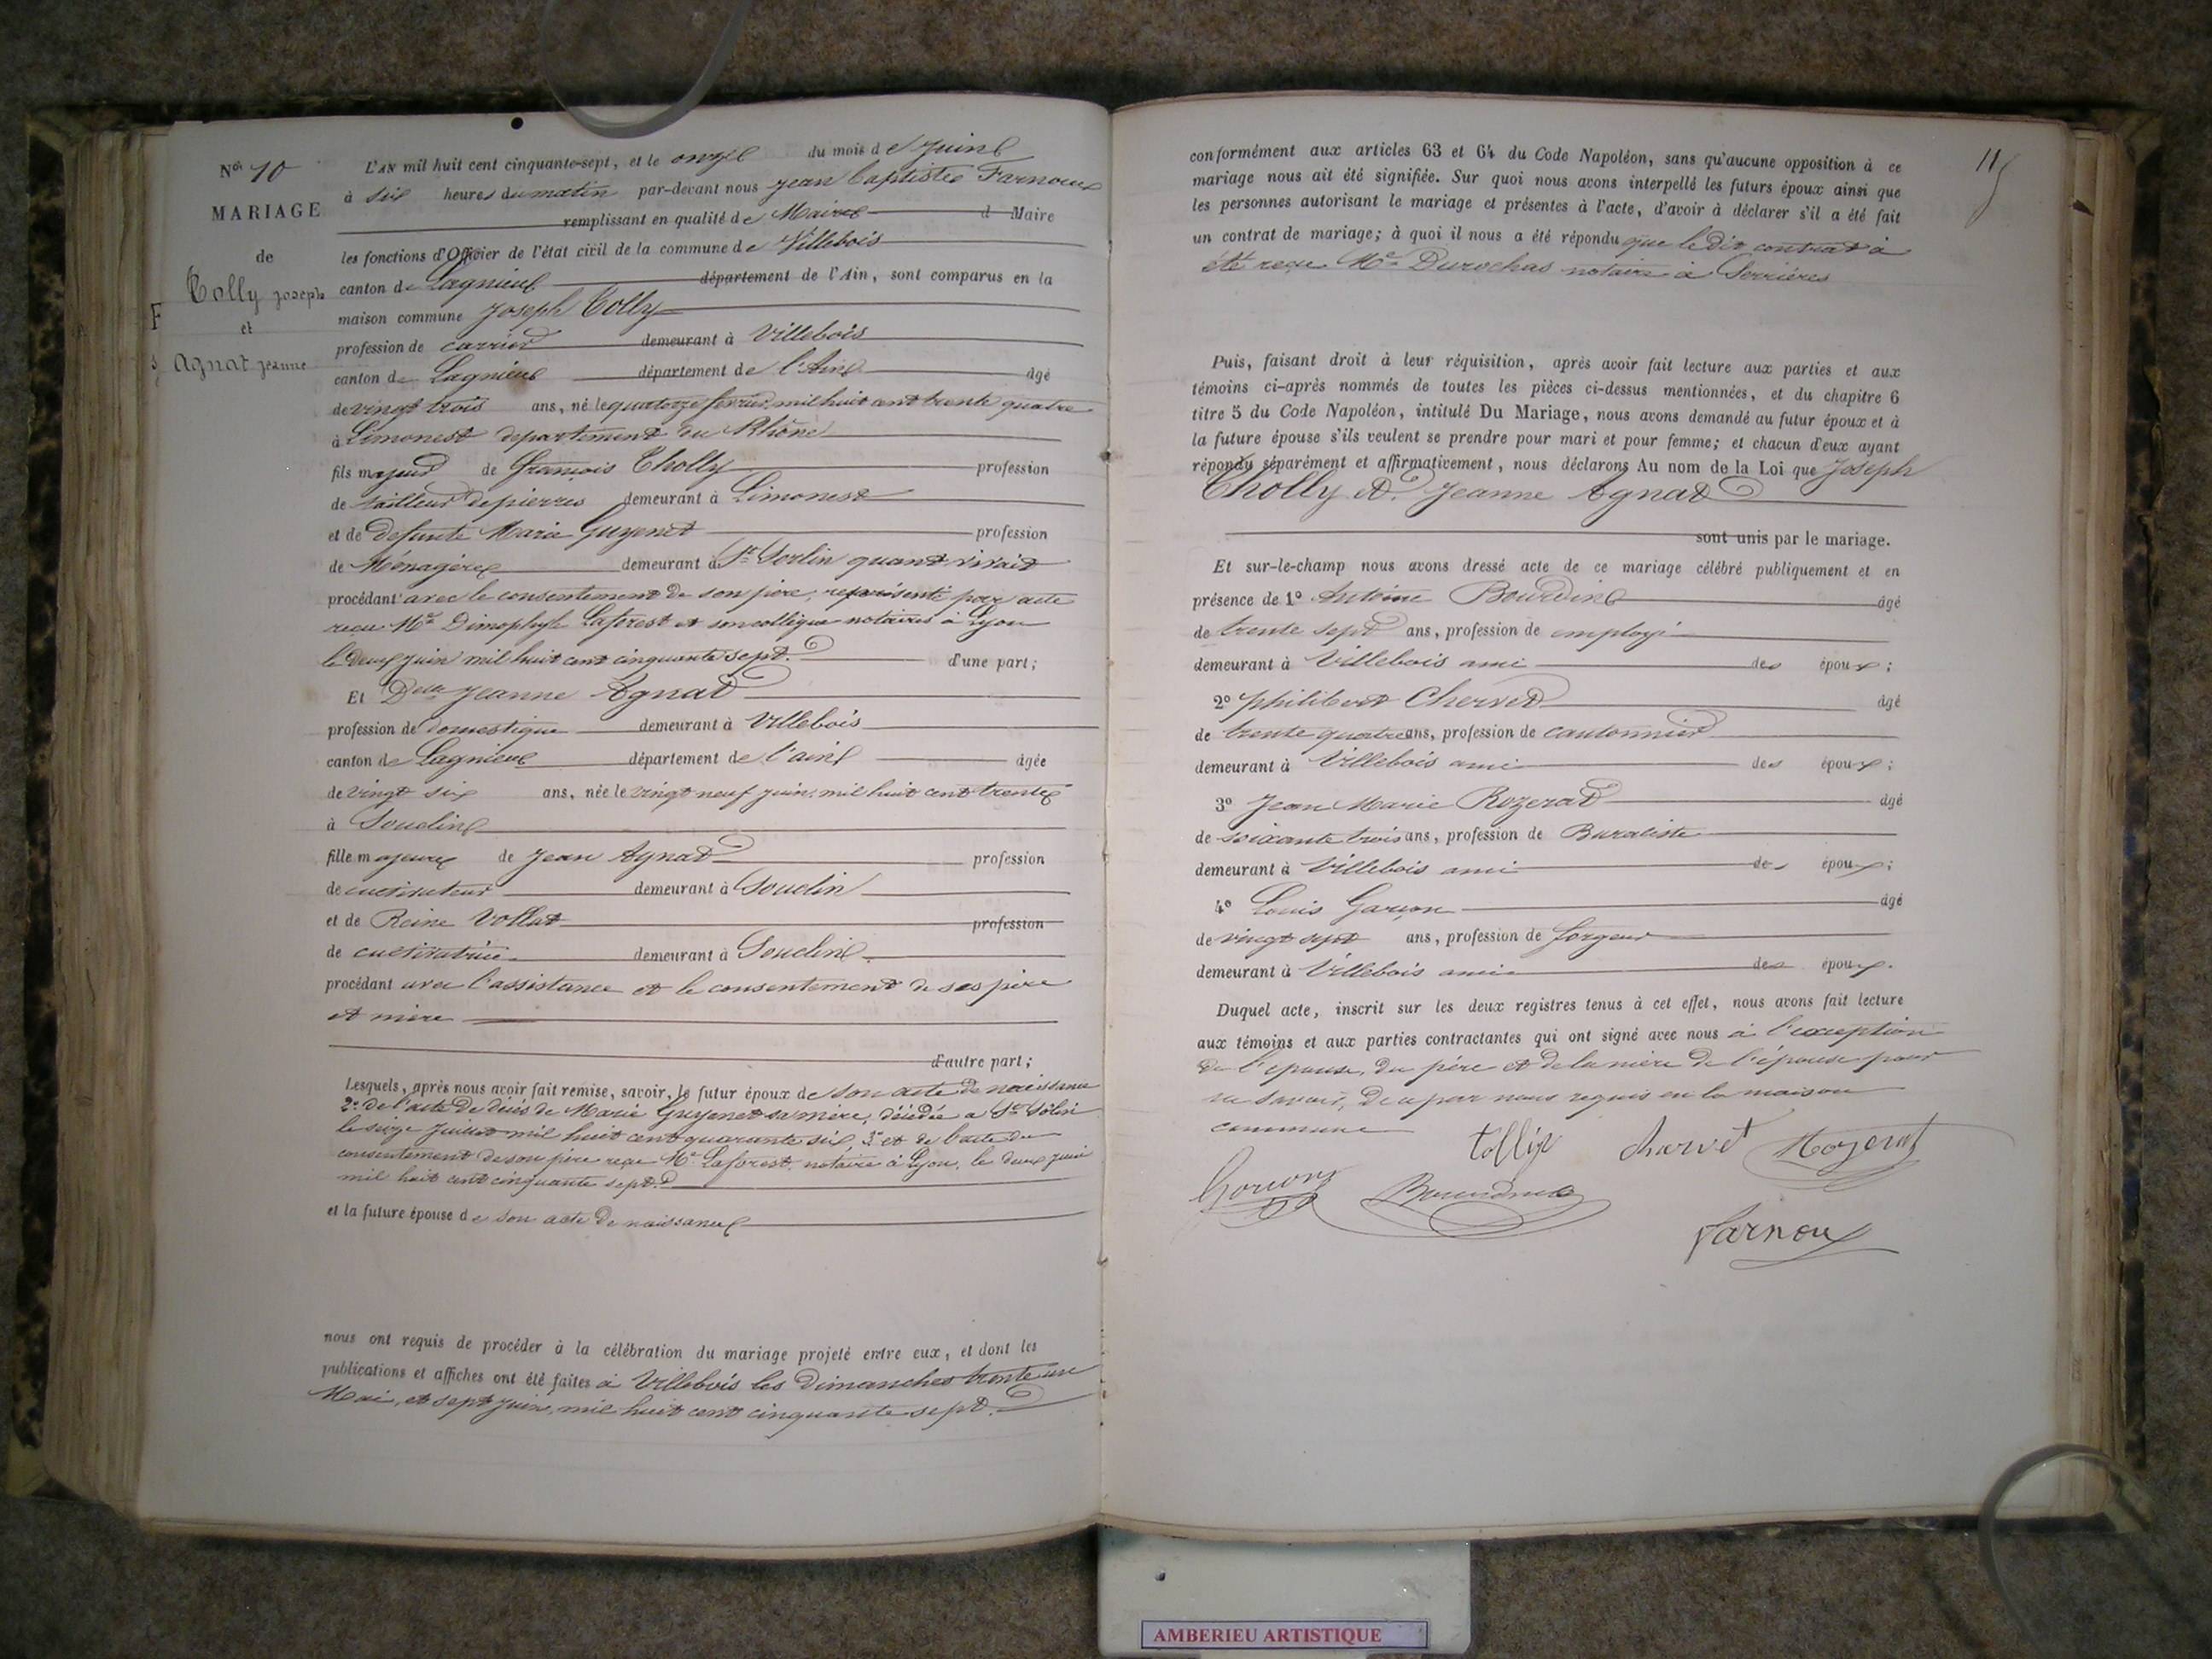 Nos 10
MARIAGE
de
Tolly Joseph
et
Agnat Jeanne
L'AN mil huit cent cinquante-sept, et le onze du mois de Juin
à six heures du matin par-devant nous Jean Baptiste Farnoux
remplissant en qualité de Maire d Maire
les fonctions d'Officier de l'état civil de la commune de Villebois
canton de Lagnieu département de l'Ain, sont comparus en la
maison commune Joseph Tolly
profession de carrier demeurant à Villebois
canton de Lagnieu département de l'Ain âgé
de vingt trois ans, né le quatorze fevrier mil huit cent trente quatre
à Limonest departement du Rhône
fils majeur de François Tholly profession
de tailleur de pierres demeurant à Limonest
et de defunte Marie Guyenet profession
de Ménagère demeurant à St Sorlin quant vivait
procédant avec le consentement de son père, représenté par acte
reçu Me Laforest et son collègue notaires à Lyon
le deux juin mil huit cent cinquante sept. d'une part;
Et Delle Jeanne Agnat
profession de domestique demeurant à Villebois
canton de Lagnieu département de l'ain âgée
de vingt six ans, née le vingt neuf juin mil huit cent trente
à Souclin
fille majeure de Jean Agnat profession
de cultivateur demeurant à Souclin
et de Reine Vollat profession
de cultivatrice demeurant à Souclin
procédant avec l'assistance et le consentement de ses père
et mère
d'autre part;
Lesquels, après nous avoir fait remise, savoir, le futur époux de son acte de naissance
2° de l'acte de décès de Marie Guyenet sa mère, décédée a St Sôlin
le seize Juillet mil huit cent quarante six, 3° et de l'acte du
consentement de son père reçu Me Laforest notaire à Lyon, le deux juin
mil huit cent cinquante sept.
et la future épouse de son acte de naissance
nous ont requis de procéder à la célébration du mariage projeté entre eux, et dont les
publications et affiches ont été faites à Villebois les Dimanches trente un
Mai, et sept juin, mil huit cent cinquante sept.
11
conformément aux articles 63 et 64 du Code Napoléon, sans qu'aucune opposition à ce
mariage nous ait été signifiée. Sur quoi nous avons interpellé les futurs époux ainsi que
les personnes autorisant le mariage et présentes à l'acte, d'avoir à déclarer s'il a été fait
un contrat de mariage; à quoi il nous a été répondu que ledit contrat à
été reçu Me Durochas notaire à Serrières
Puis, faisant droit à leur réquisition, après avoir fait lecture aux parties et aux
témoins ci-après nommés de toutes les pièces ci-dessus mentionnées, et du chapitre 6
titre 5 du Code Napoléon, intitulé Du Mariage, nous avons demandé au futur époux et à
la future épouse s'ils veulent se prendre pour mari et pour femme; et chacun d'eux ayant
répondu séparément et affirmativement, nous déclarons Au nom de la Loi que Joseph
Tholly et Jeanne Agnat
sont unis par le mariage.
Et sur-le-champ nous avons dressé acte de ce mariage célébré publiquement et en
présence de 1° Antoine Bourdin âgé
de trente sept ans, profession de employé
demeurant à Villebois ami des époux;
2° Philibert Chervet âgé
de trente quatre ans, profession de cantonnier
demeurant à Villebois ami des époux;
3° Jean Marie Rozerat âgé
de soixante trois ans, profession de Buraliste
demeurant à Villebois ami des époux;
4° Louis Garçon âgé
de vingt sept ans, profession de forgeur
demeurant à Villebois ami des époux.
Duquel acte, inscrit sur les deux registres tenus à cet effet, nous avons fait lecture
aux témoins et aux parties contractantes qui ont signé avec nous à l'exception
de l'épouse, du père et de la mère de l'épouse pour
ne savoir, de ce par nous requis en la maison
commune
tolliy charvet Rozerat
Bourdin
farnoux
AMBERIEU ARTISTIQUE